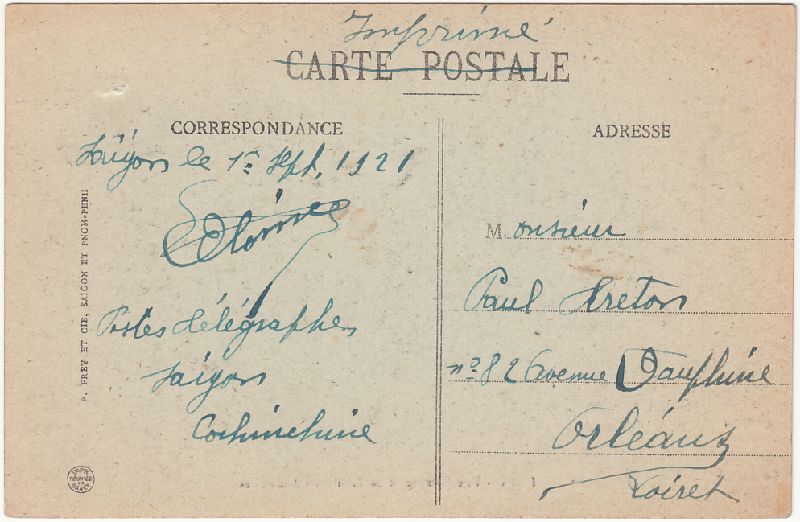 Imprimé
CARTE POSTALE
CORRESPONDANCE
Saïgon le 1er Sept. 1921
Postes Télégraphes
Saïgon
Cochinchine
P. PREY ET CIE, SAIGON ET PNOM-PENH
ADRESSE
Monsieur
Paul
n° 82 Avenue Dauphine
Orléans
Loiret